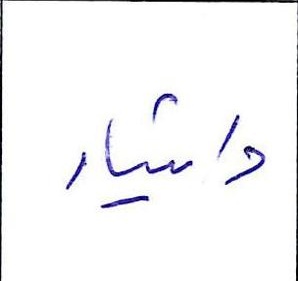 دانشیار